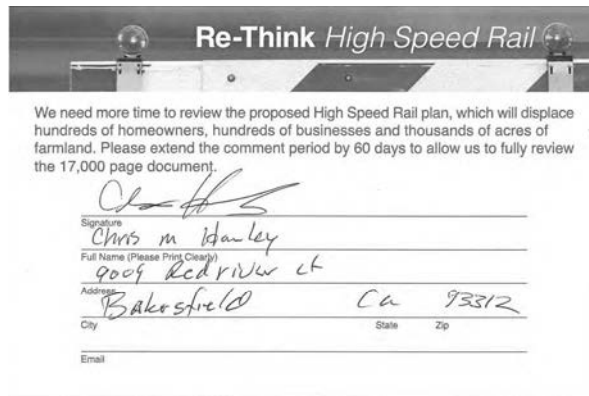 Re-Think High Speed Rail
We need more time to review the proposed High Speed Rail plan, which will displace
hundreds of homeowners, hundreds of businesses and thousands of acres of
farmland. Please extend the comment period by 60 days to allow us to fully review
the 17,000 page document.
Signature
Chris m Hanley
Full Name (Please Print Clearly)
9009 Redriver ct
Address
Bakersfield Ca 93312
City State Zip
Email